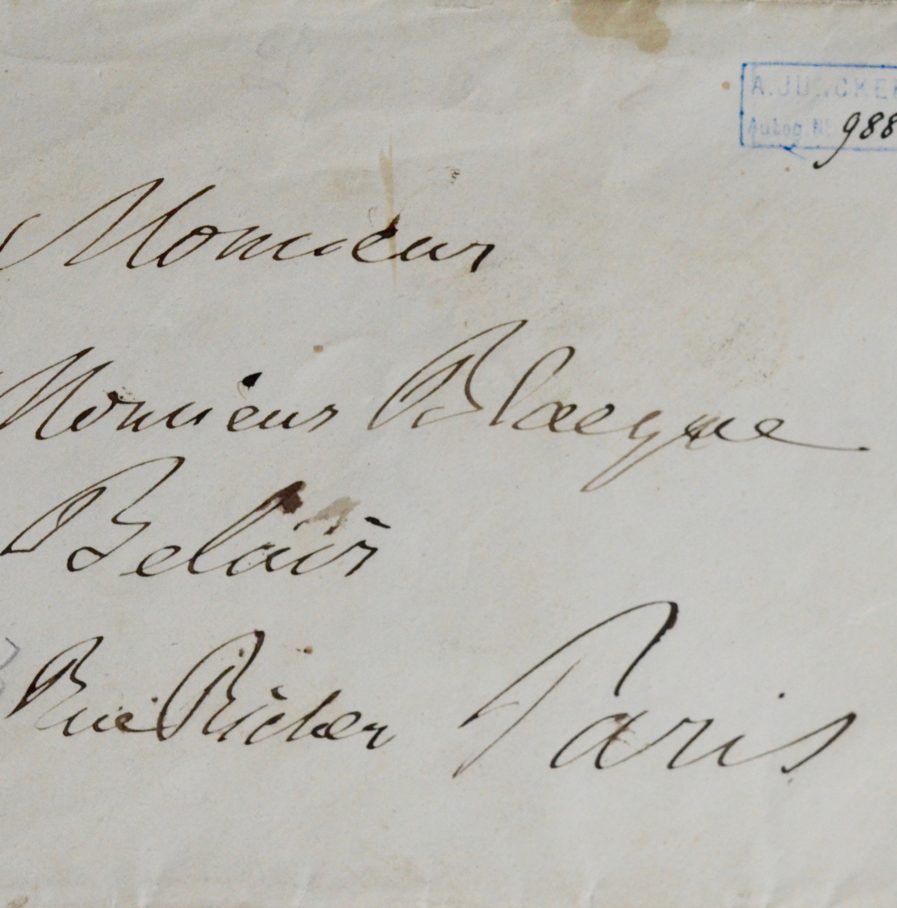 A. JUNCKER
Autog. N° 988
Monsieur
Monsieur Blacque
Belair
Rue Richer Paris